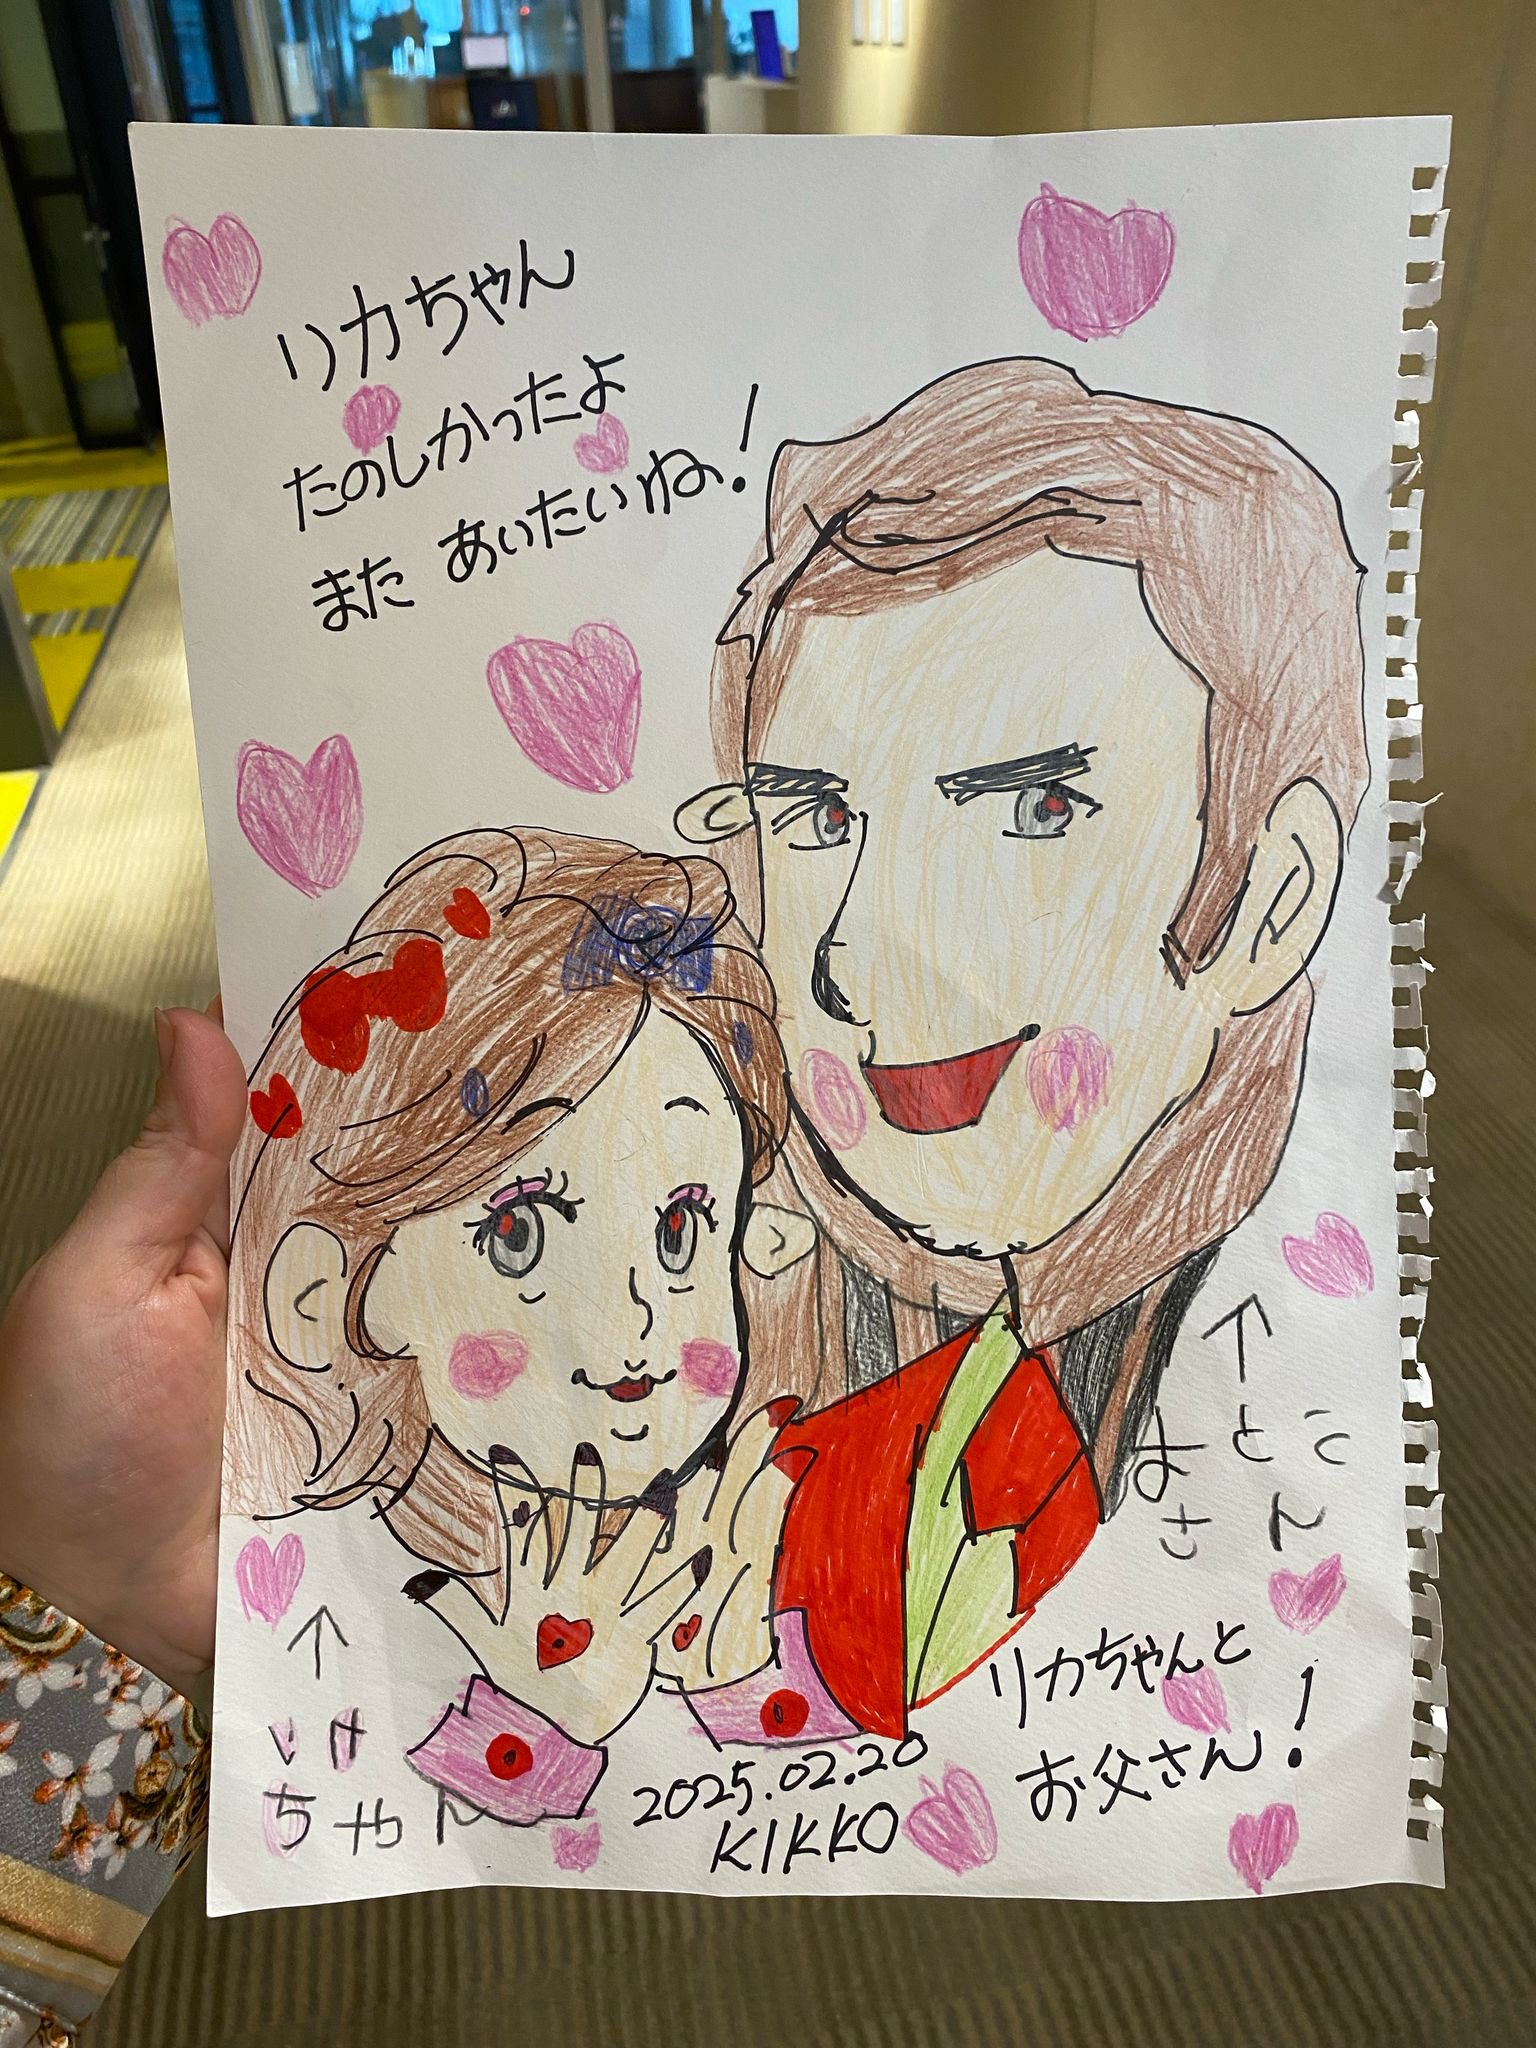 リカちゃん
たのしかったよ
また あいたいね!
おとう
さん
リカちゃんと
お父さん!
ちゃん
2025.02.20
KIKKO